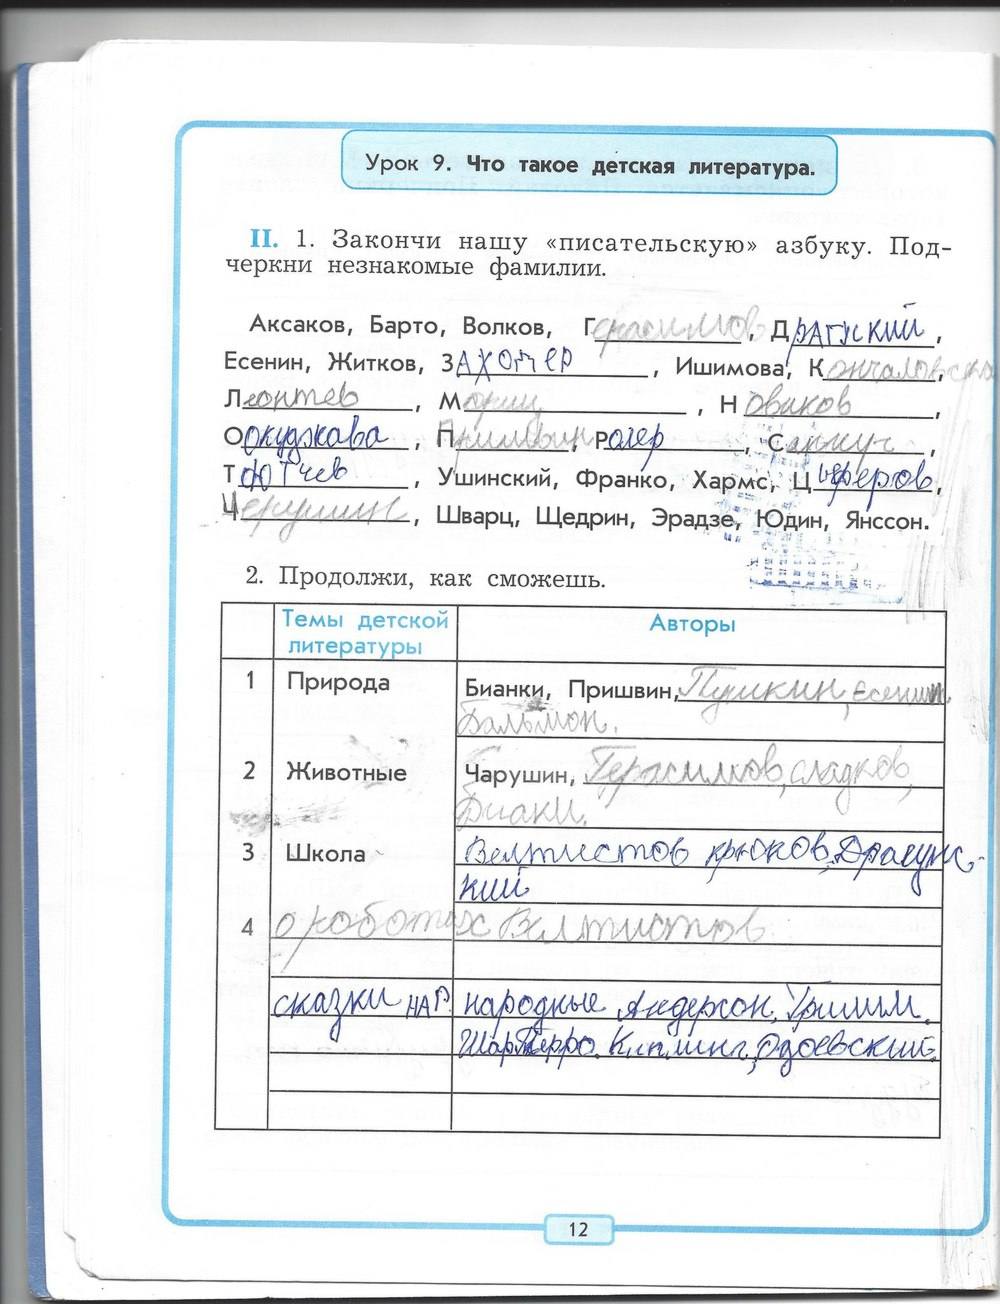 Урок 9. Что такое детская литература.
II. 1. Закончи нашу «писательскую» азбуку. Под-
черкни незнакомые фамилии.
Аксаков, Барто, Волков, Герасимов, Драгнский,
Есенин, Житков, Заходер, Ишимова, Кончаловска
Леонтев, Мориц, Новиков,
Оокуджава, П Рбглер, С
Тютчев, Ушинский, Франко, Хармс, Цыферов,
Чарушин, Шварц, Щедрин, Эрадзе, Юдин, Янссон.
2. Продолжи, как сможешь.
Темы детской литературы Авторы
1 Природа Бианки, Пришвин, Пушкин, Есенин,
Бальмон.
2 Животные Чарушин, Герасимов, сладков,
Биаки.
3 Школа Велтистов крюков, Драгунс-
кий
4 о роботах Велтистов
сказки нар. народные Андерсон, Гримм.
Шар Перро. Киплинг, Одоевский,
12